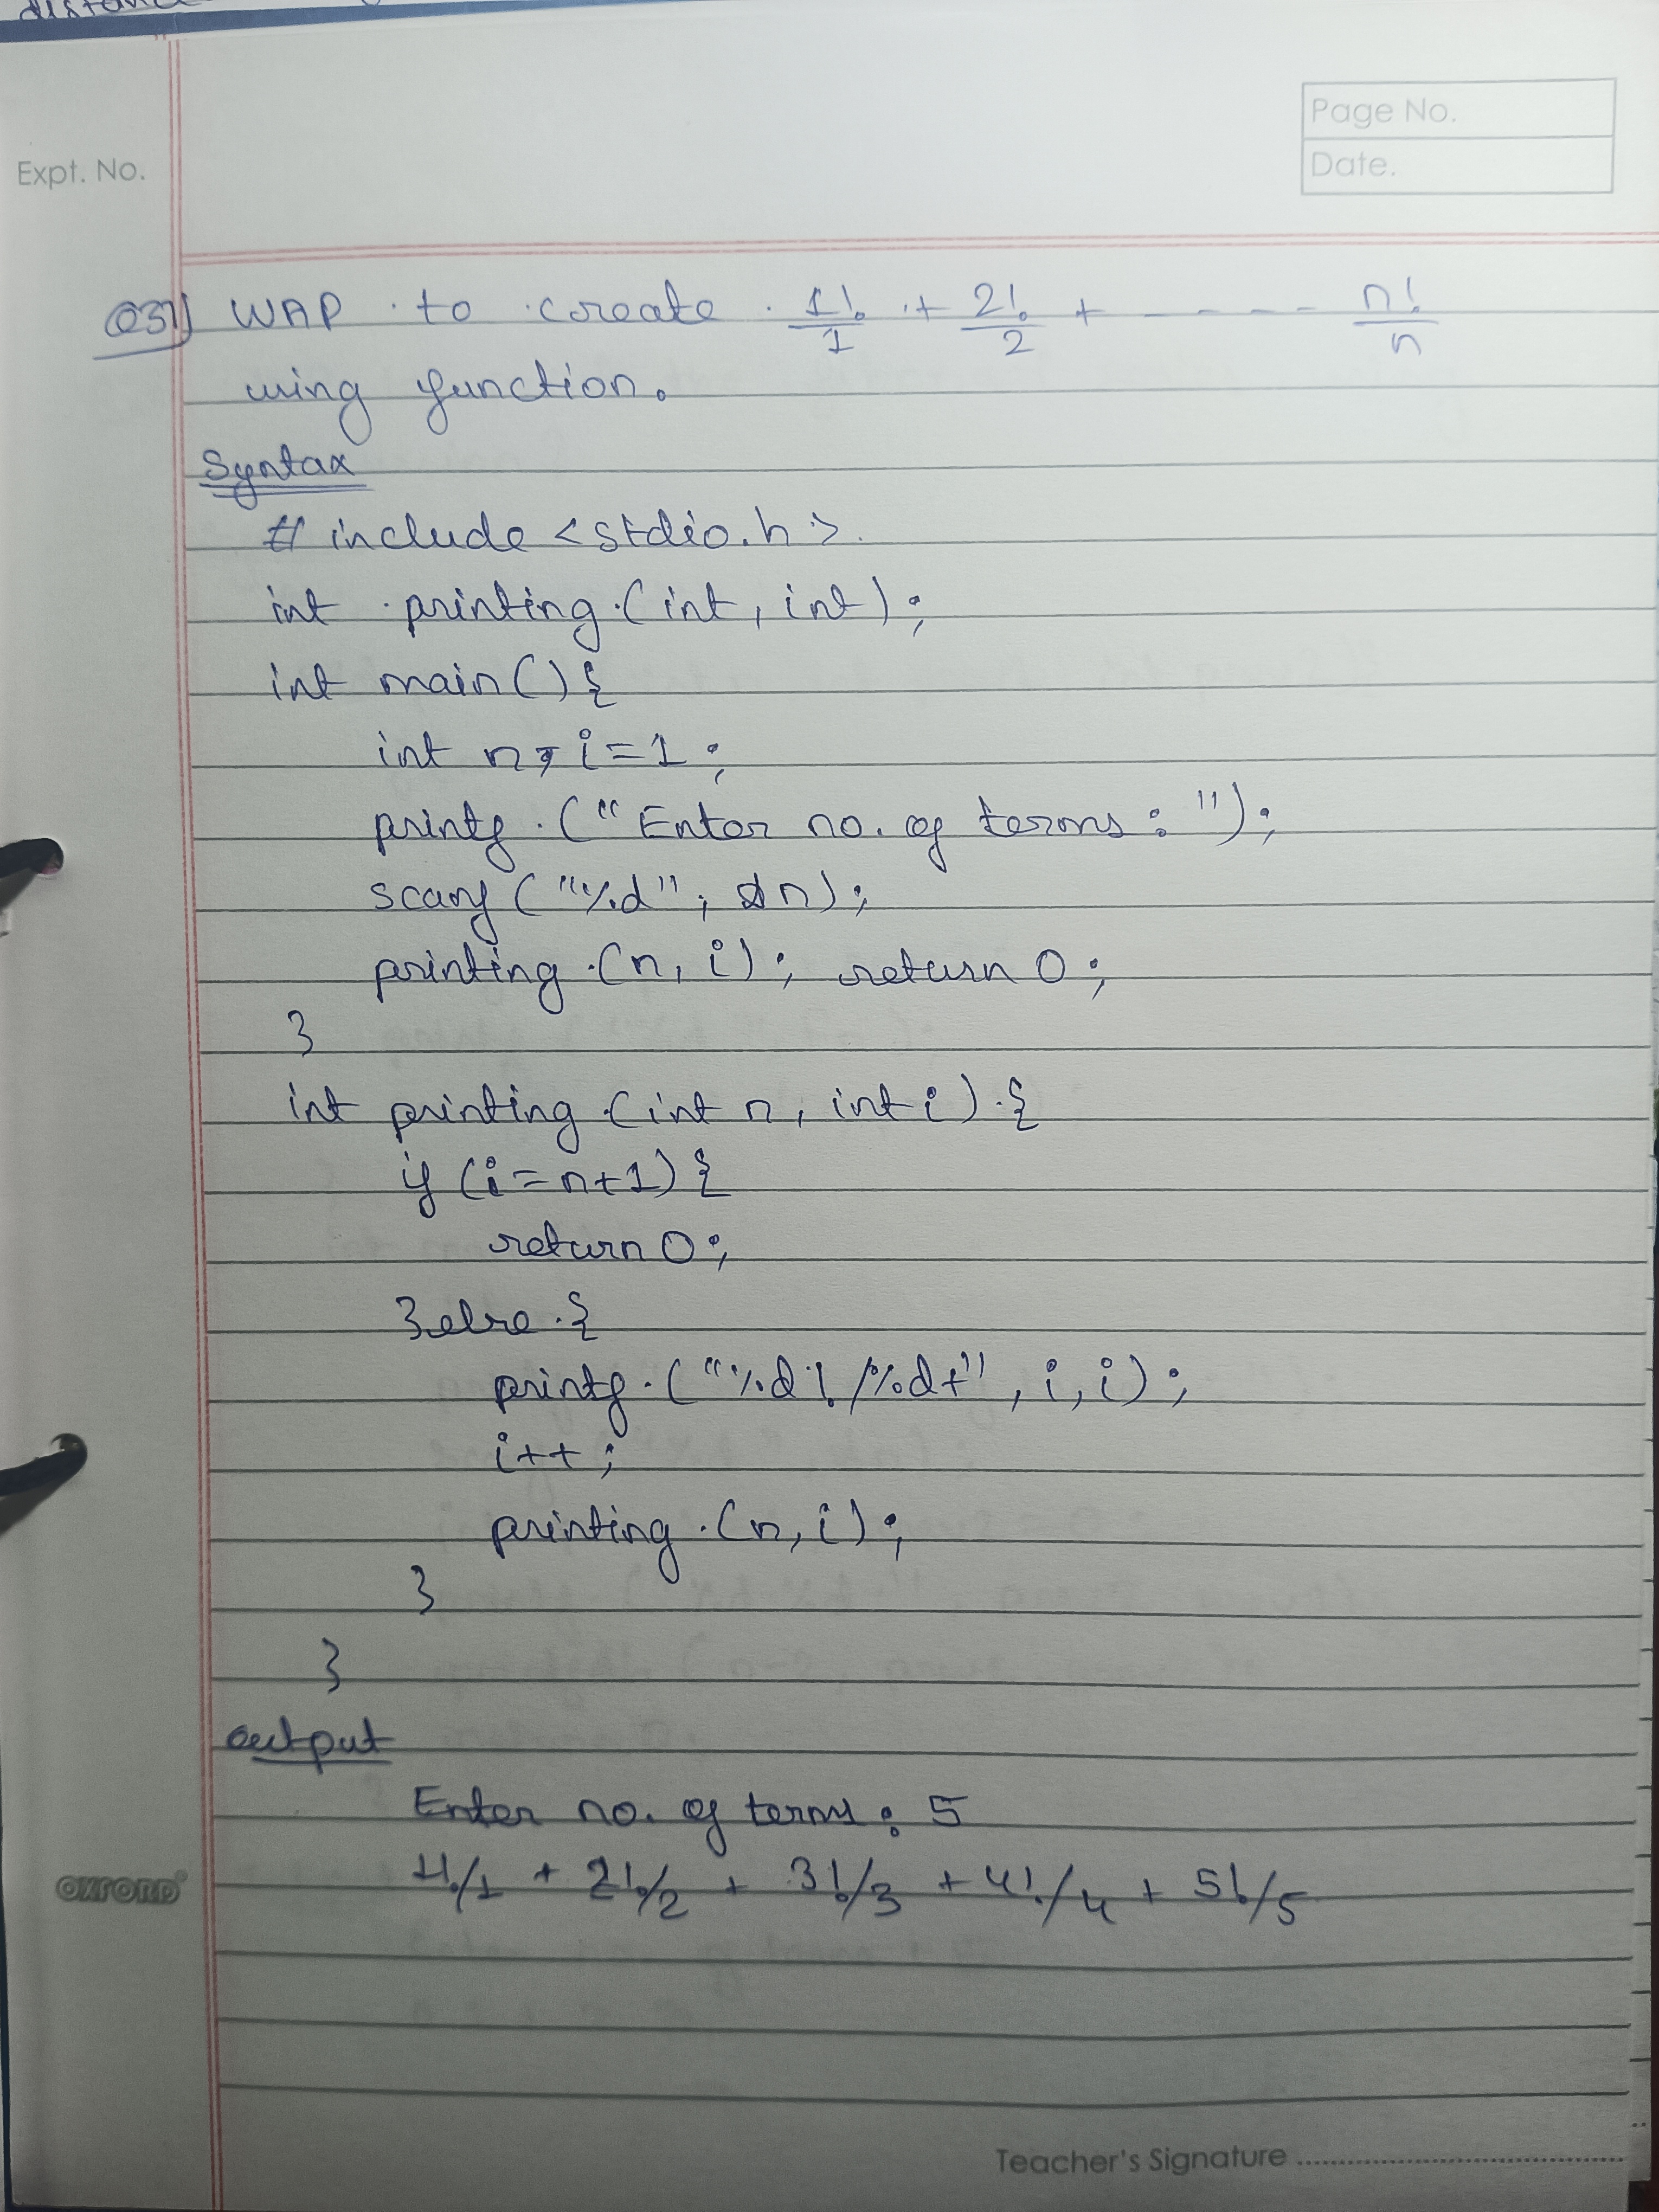 Page No.
Date.
Expt. No.
Q31) WAP to create 1!/1 + 2!/2 + ---- n!/n
using function.
Syntax
# include <stdio.h>
int printing (int, int);
int main() {
int n, i=1;
printf ("Enter no. of terms: ");
scanf ("%d", &n);
printing (n, i); return 0;
}
int printing (int n, int i) {
if (i=n+1) {
return 0;
}else {
printf ("%d!/%d+", i, i);
i++;
printing (n, i);
}
}
output
Enter no. of terms: 5
1!/1 + 2!/2 + 3!/3 + 4!/4 + 5!/5
OXFORD
Teacher's Signature